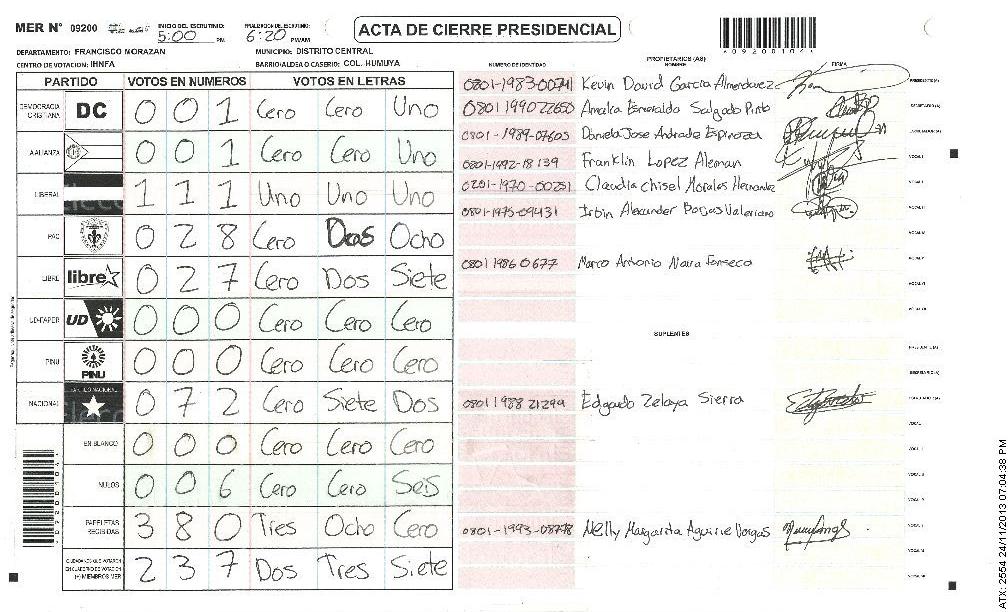 MER N° 09200
INICIO DEL ESCRUTINIO: 5:00 PM
FINALIZACION DEL ESCRUTINIO: 6:20 PM/AM
ACTA DE CIERRE PRESIDENCIAL
DEPARTAMENTO: FRANCISCO MORAZAN
MUNICIPIO: DISTRITO CENTRAL
CENTRO DE VOTACION: IHNFA
BARRIO/ALDEA O CASERIO: COL. HUMUYA
PARTIDO VOTOS EN NUMEROS VOTOS EN LETRAS
DEMOCRACIA CRISTIANA DC 0 0 1 Cero Cero Uno
AALIANZA 0 0 1 Cero Cero Uno
LIBERAL 1 1 1 Uno Uno Uno
PAC 0 2 8 Cero Dos Ocho
LIBRE libre 0 2 7 Cero Dos Siete
UD-FAPER UD 0 0 0 Cero Cero Cero
PINU PINU 0 0 0 Cero Cero Cero
NACIONAL 0 7 2 Cero Siete Dos
EN BLANCO 0 0 0 Cero Cero Cero
NULOS 0 0 6 Cero Cero Seis
PAPELETAS RECIBIDAS 3 8 0 Tres Ocho Cero
CIUDADANOS QUE VOTARON (+) MIEMBROS MER 2 3 7 Dos Tres Siete
PROPIETARIOS (AS)
NUMERO DE IDENTIDAD NOMBRE FIRMA
0801-1983-00741 Kevin David Garcia Almendarez
0801199022650 Amalia Esmeralda Salgado Pinto
0801-1989-07605 Daniela Jose Andrade Espinoza
0801-1992-18139 Franklin Lopez Aleman
0201-1970-00251 Claudia Chisel Morales Hernandez
0801-1975-09431 Irbin Alexander Borjas Valeriano
08011986 0677 Marco Antonio Nava Fonseca
SUPLENTES
08011988 21299 Edgardo Zelaya Sierra
0801-1993-08778 Nelly Margarita Aguirre Vargas
ATX: 2554 24/11/2013 07:04:38 PM